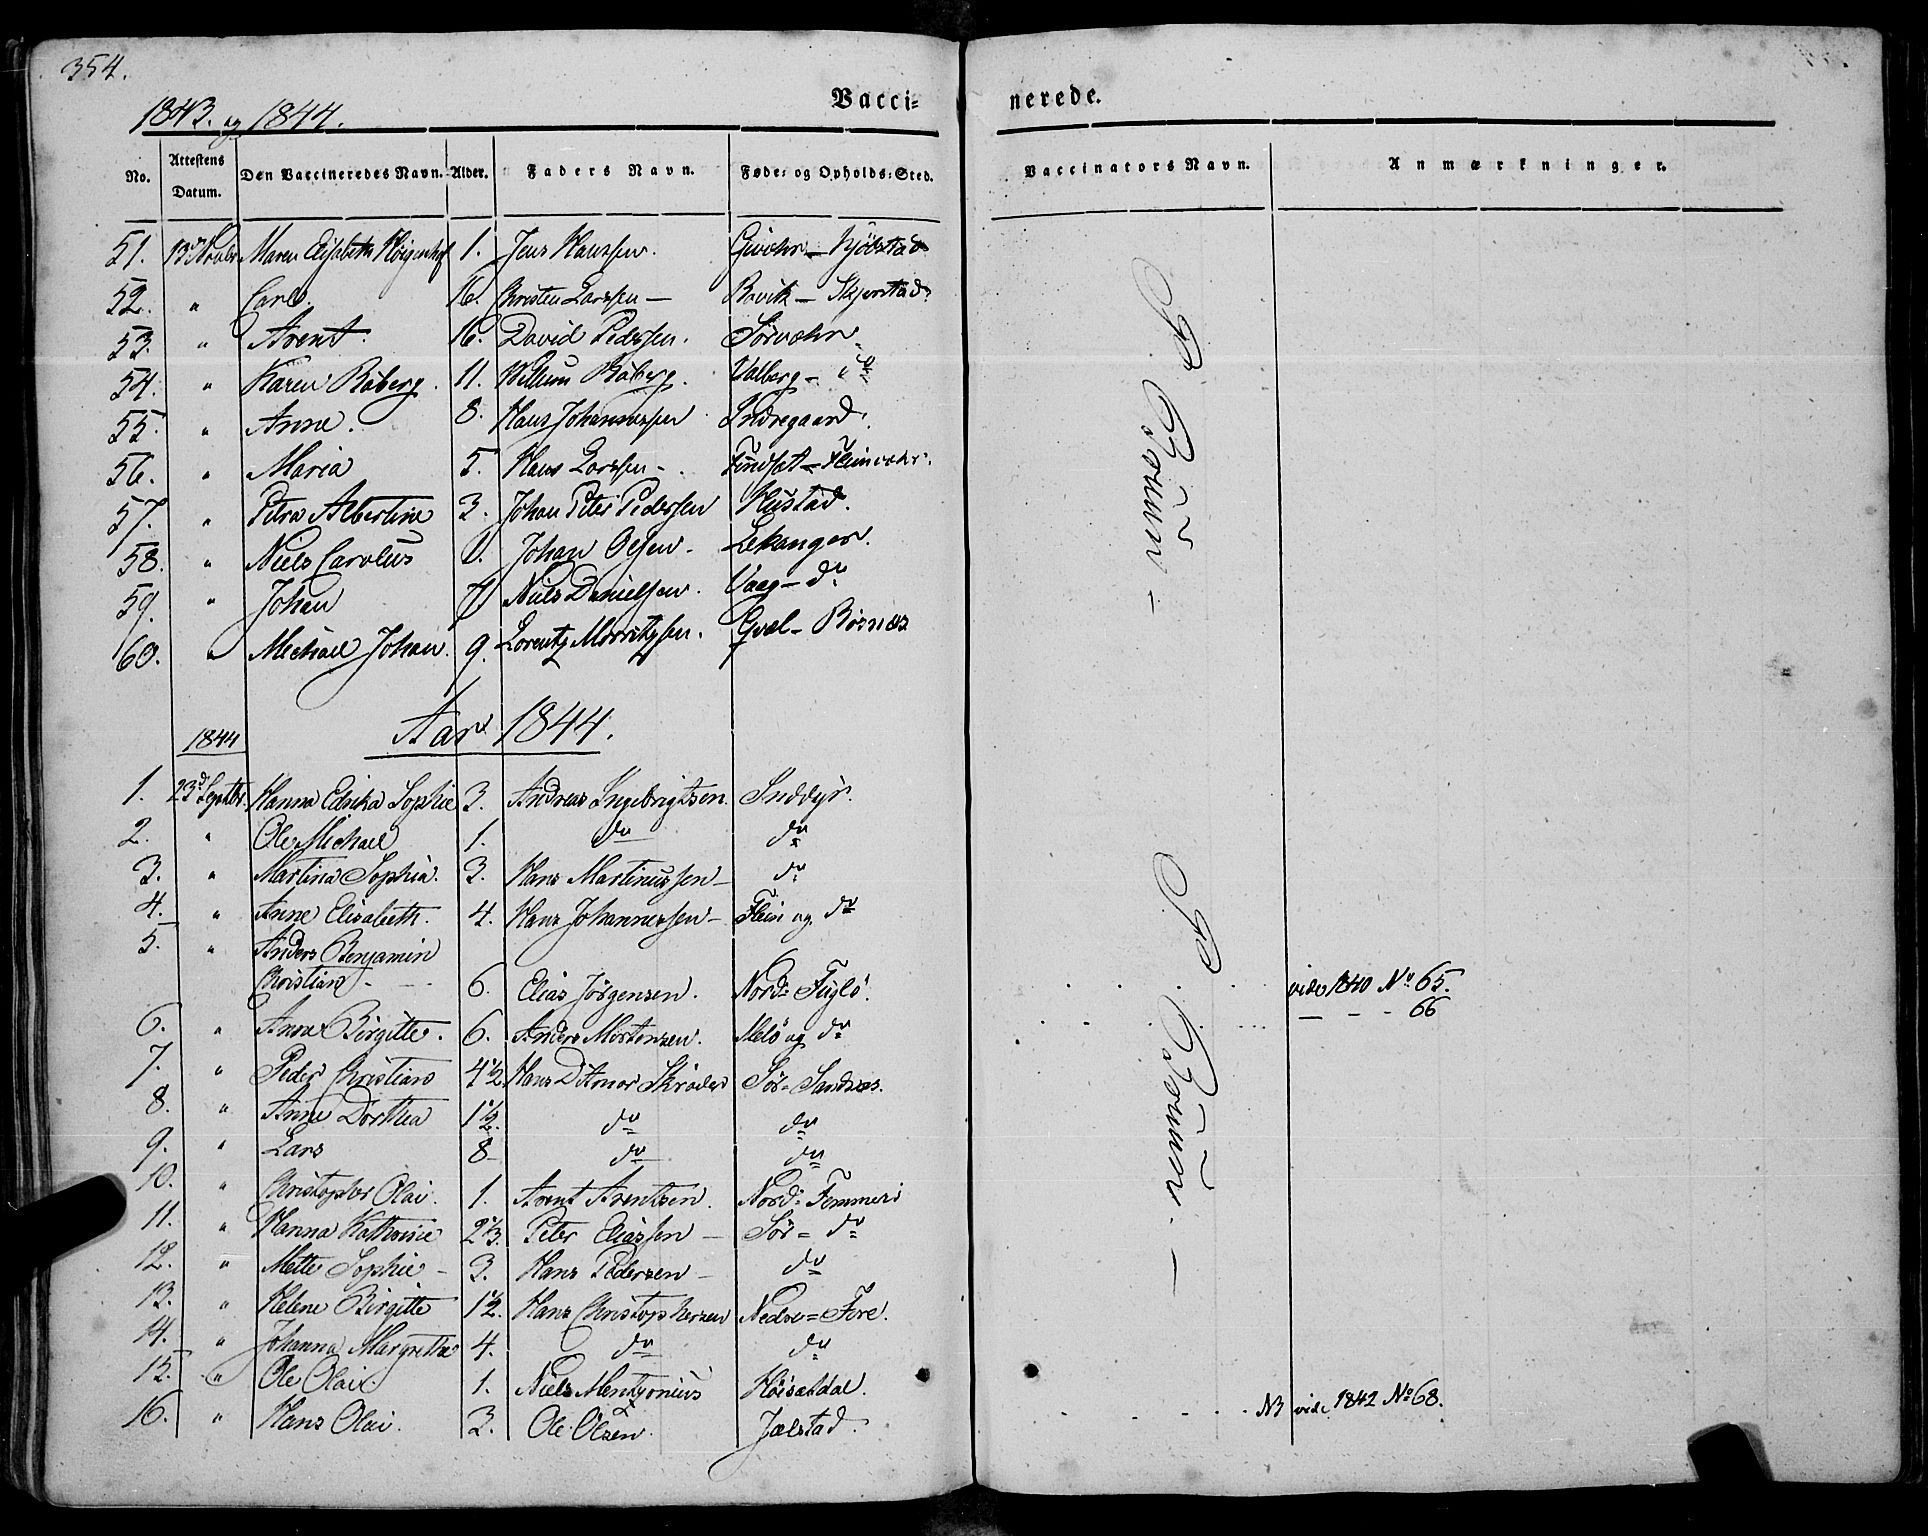 354.
1843. og 1844.
Vacci= nerede.
No. Attestens Datum. Den Vaccineredes Navn. Alder. Faders Navn. Føde= og Opholds=Sted. Vaccinators Navn. Anmærkninger.
51. 13 Novbr Maren Elisabeth 1. Jens Hanssen. Givær - Kjölstad
52. " Carl. 16. Christen Larssen - Bovik - Skjerstad
53. " Arent. 16. David Pedersen. Sörvær
54. " Karen Röberg. 11. Willum Röberg. Valberg - "
55. " Anne. 8. Hans Johannessen Indregaard.
56. " Maria 5. Hans Larssen - Fleinvær.
57. " Petra Albertine 3. Johan Peter Pedersen Hustad.
58. " Niels Carolus Johan Olsen - Lekanger.
59. " Johan Niels Danielsen. Vaag - do
60. " Michael Johan. 9. Lorentz Morritzsen. Gvæl - Bösnæs
P. Börsum -
1844 Aar 1844.
1. 23d Septbr. Hanna Edrika Sophie 3. Andreas Ingebrigtsen. Inddyr.
2. " Ole Michael 1. do do
3. " Martina Sophia. 3. Hans Martinussen - do
4. " Anne Elisabeth. 4. Hans Johannessen - Flein og do
5. " Anders Benjamin
Christian - 6. Elias Jörgensen. Nord= Fuglö. vide 1840 No 65.
6. " Anne Birgitte. 6. Anders Mortensen. Melö og do - - - 66
7. " Peder Christian 4½ Hans Ditmar Skröder Sör= Sandnæs.
8. " Anne Dorthea 1½. do do
9. " Lars 8 do do
10. " Christopher Olai. 1. Arent Arentsen. Nord= Femmeris
11. " Hanna Kathrine 2⅓. Peter Eliassen - Sör= do
12. " Mette Sophie - 3. Hans Pedersen - do
13. " Helene Birgitte 1½. Hans Christophersen Nedre= Fore.
14. " Johanna Margretha 4. do do
15. " Ole Olai. 1. Niels Mentzonius Höisætdal.
16. " Hans Olai. 3. Ole Olsen. Jælstad. NB vide 1842 No 68.
P. Börsum. -